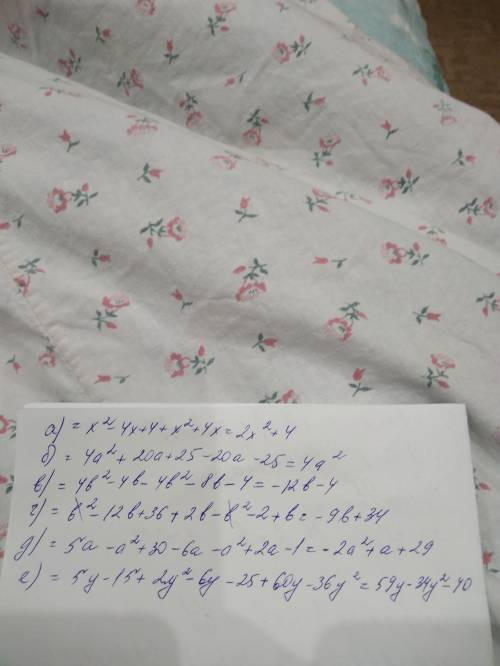 а) = x² - 4x + 4 + x² + 4x = 2x² + 4
б) = 4a² + 20a + 25 - 20a - 25 = 4a²
в) = 4b² - 4b - 4b² - 8b - 4 = -12b - 4
г) = b² - 12b + 36 + 2b - b² - 2 + b = -9b + 34
д) = 5a - a² + 30 - 6a - a² + 2a - 1 = -2a² + a + 29
е) = 5y - 15 + 2y² - 6y - 25 + 60y - 36y² = 59y - 34y² - 40